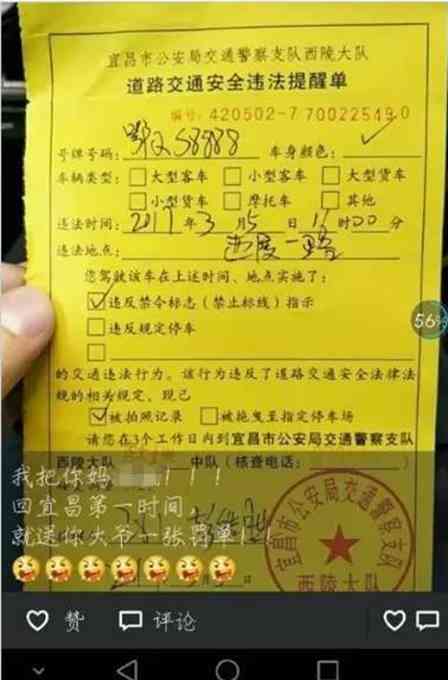 宜昌市公安局交通警察支队西陵大队
道路交通安全违法提醒单
编号: 420502-7 70022549 0
号牌号码: 58888 车身颜色:
车辆类型: 大型客车 小型客车 大型货车
小型货车 摩托车 其他
违法时间: 2017 年 3 月 5 日 时 00 分
违法地点: 一路
您驾驶该车在上述时间、地点实施了:
违反禁令标志(禁止标线)指示
违反规定停车
的交通违法行为。该行为违反了道路交通安全法律法
规的相关规定,现已
被拍照记录 被拖曳至指定停车场
请您在3个工作日内到宜昌市公安局交通警察支队
西陵大队 中队(核查电话:
我把你妈 !!!
回宜昌第一时间,
就送你大爷一张罚单!!
宜昌市公安局交通警察支队
西陵大队
赞 评论
56